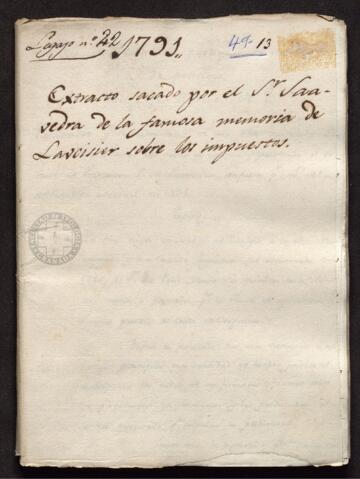 Legajo nº 22 1791,,
49- 13
Extracto sacado por el Sr. Saa-
vedra de la famosa memoria de
Lavoisier sobre los impuestos.